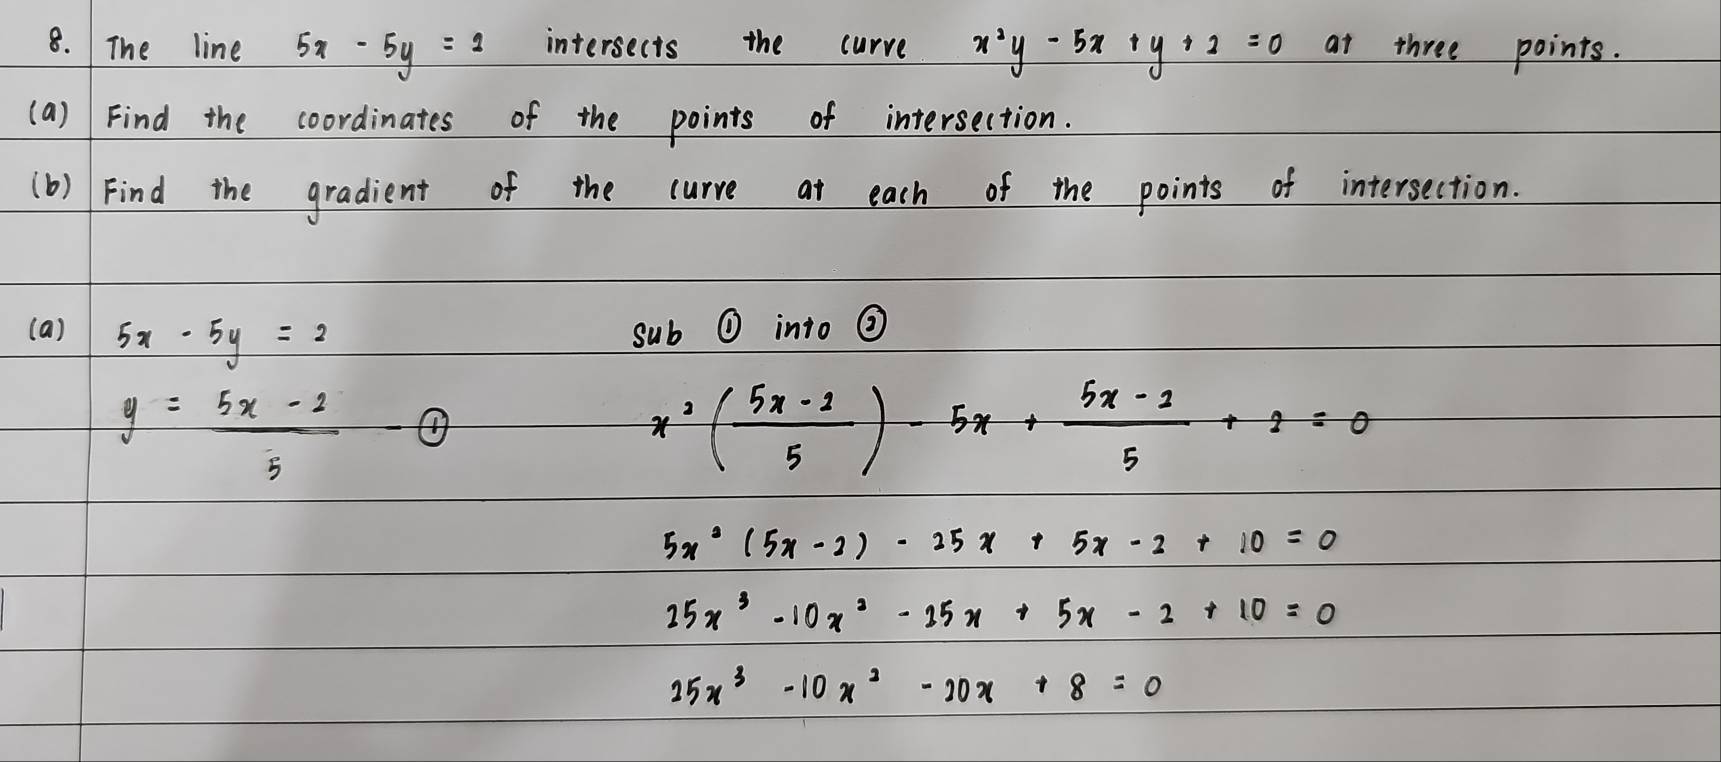 8. The line 5x - 5y = 2 intersects the curve x²y - 5x + y + 2 = 0 at three points.
(a) Find the coordinates of the points of intersection.
(b) Find the gradient of the curve at each of the points of intersection.
(a) 5x - 5y = 2
y = (5x - 2)/5 - ①
sub ① into ②
x²((5x - 2)/5) - 5x + (5x - 2)/5 + 2 = 0
5x²(5x - 2) - 25x + 5x - 2 + 10 = 0
25x³ - 10x² - 25x + 5x - 2 + 10 = 0
25x³ - 10x² - 20x + 8 = 0